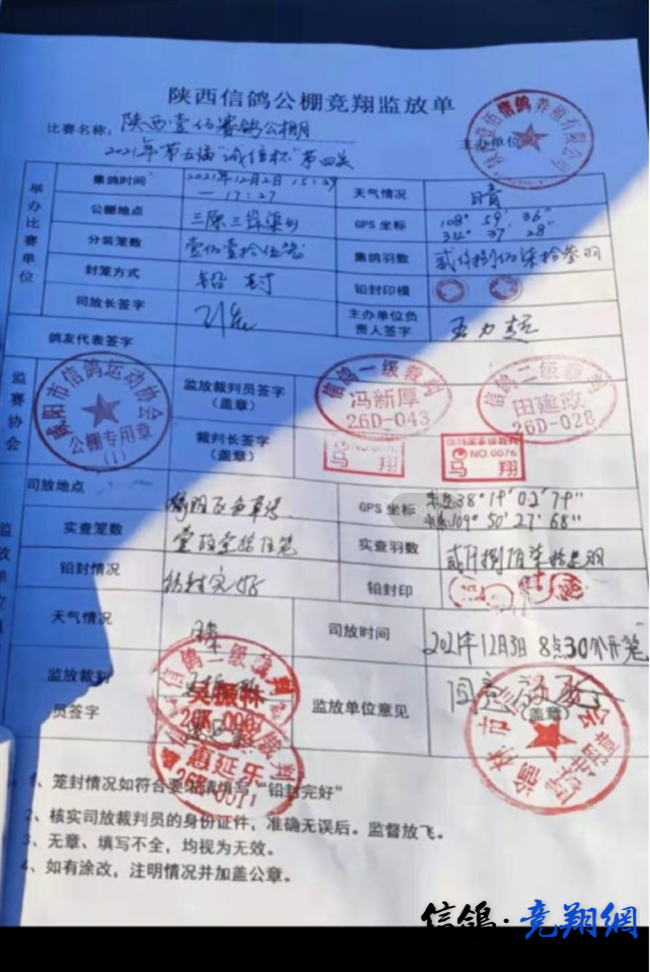 陕西信鸽公棚竞翔监放单
比赛名称： 陕西壹佰赛鸽公棚
主办单位
2021年第五届"诚信杯"第四关
举办比赛单位
集鸽时间 2021年12月2日 15:29 — 17:27 天气情况 晴
公棚地点 三原 GPS 坐标 108° 59' 36" 34° 37' 28"
分装笼数 壹佰壹拾伍笼 集鸽羽数 贰仟捌佰柒拾叁羽
封笼方式 铅封 铅封印模
司放长签字 主办单位负责人签字
鸽友代表签字
监赛协会
咸阳市信鸽运动协会
公棚专用章
(1)
监放裁判员签字（盖章）
信鸽一级裁判
冯新厚
26D-043
信鸽二级裁判
田建政
26D-028
裁判长签字（盖章）
马 翔
NO.0076
马 翔
监放单位
司放地点 GPS 坐标 38°19'02'79" 109°50'27'68"
实查笼数 壹佰壹拾伍笼 实查羽数 贰仟捌佰柒拾叁羽
铅封情况 铅封完好 铅封印
天气情况 晴 司放时间 2021年12月3日 8点30分开笼
监放裁判员签字
信鸽二级裁判
吴振林
26B-0007
惠延乐
26B-0011
监放单位意见 同意放飞
（盖章）
榆林市信鸽协会
1、笼封情况如符合要求请填写"铅封完好"
2、核实司放裁判员的身份证件，准确无误后。监督放飞。
3、无章、填写不全，均视为无效。
4、如有涂改，注明情况并加盖公章。
信鸽·竞翔網